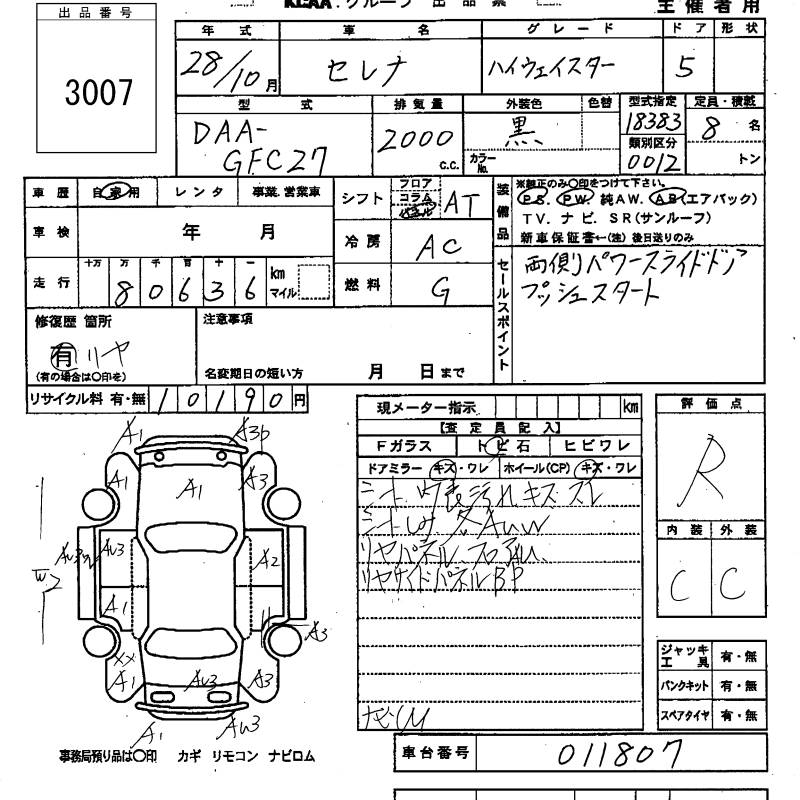 出品番号
3007
KCAA.グループ 出品票
主催者用
年式 車名 グレード ドア 形状
28/10月 セレナ ハイウェイスター 5
型式 排気量 外装色 色替 型式指定 定員・積載
DAA-GFC27 2000 c.c. 黒 カラーNo. 18383 8名
類別区分
0012 トン
車歴 自家用 レンタ 事業.営業車
シフト フロア コラム AT
装備品 ※純正のみ〇印をつけて下さい。
PS. PW. 純AW. AB(エアバック)
TV. ナビ. SR(サンルーフ)
新車保証書←(注) 後日送りのみ
車検 年 月
冷房 AC
走行 十万 万 千 百 十 一
80636 km マイル
燃料 G
セールスポイント
両側パワースライドドア
プッシュスタート
修復歴 箇所
有 リヤ
(有の場合は〇印を)
注意事項
名変期日の短い方 月 日まで
リサイクル料 有・無 10190円
現メーター指示 km
【査定員記入】
Fガラス トビ石 ヒビワレ
ドアミラー キズ・ワレ ホイール(CP) キズ・ワレ
シート 汚れ キズ スレ
リヤパネル
リヤサイドパネル BP
評価点
R
内装 外装
C C
A1 A3b
A1 A1 A3
AU3 A2
A1 A3
XX
A1 AU3 A3
A1 AU3
ジャッキ工具 有・無
パンクキット 有・無
スペアタイヤ 有・無
事務局預り品は〇印 カギ リモコン ナビロム
車台番号 011807